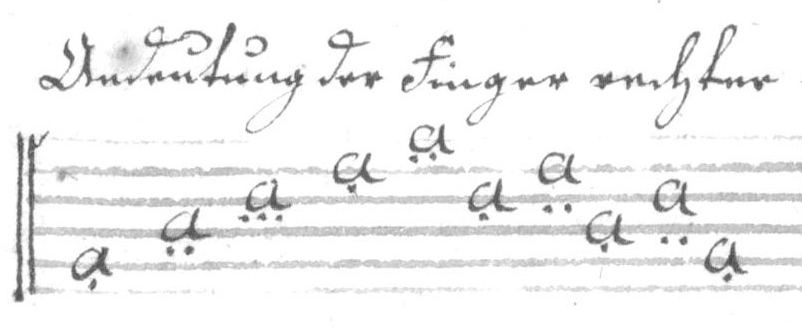 Andeutung der Finger rechter
a a a a a a a a a a